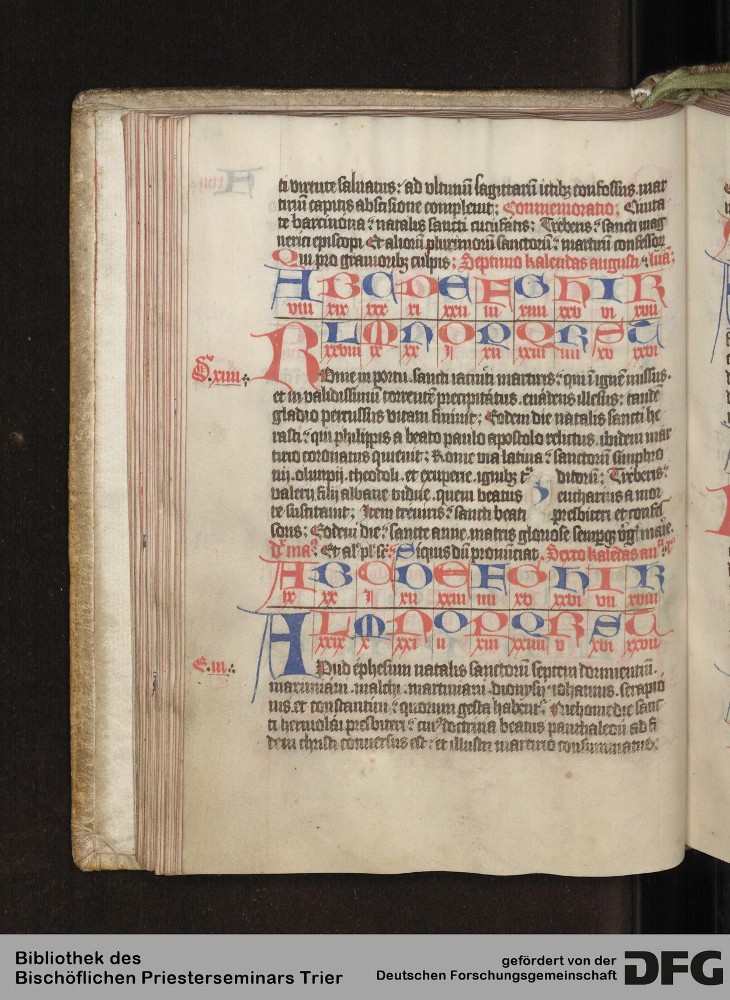 ti virtute saluatus: ad vltimũ sagittarũ ictibꝫ confossus. mar
tiriũ capitis abscisione compleuit; Commemoratio; Ciuita
te barcinona: natalis sancti cucufatis; Treberis: sancti mag
nerici episcopi Et alioꝝ plurimorũ sanctorũ: martirũ confessoꝝ
Qui pro grauioribꝫ culpis; Septimo kalendas augusti luã;
A B C D E F G H I K
viii xix xxx xi xxii iii xiiii xxv vi xvii
L M N O P Q R S T
xxviii ix xx i xii xxiii iiii xv xxvi
D. xiiii
Rome in portu. sancti iacincti martiris: qui ĩ ignẽ missus.
et in validissimũ torrentẽ precipitatus. euadens illesus: tandẽ
gladio percussus vitam finiuit; Eodem die natalis sancti he
rasti: qui philippis a beato paulo apostolo relictus. ibidem mar
tirio coronatus quieuit; Rome via latina: sanctorũ simphro
nii. olimpii. theodoli. et exuperie. ignibꝫ tͣ ditorũ; Treberis:
valerii filii albane vidue. quem beatus eucharius a mor
te suscitauit; Item treuiris: sancti beati presbiteri et confes
soris; Eodem die: sancte anne. matris gloriose semperqꝫ v̾gĩs marie.
Et al pl sc: Siquis dũ pronũciat. Sexto kalendas au
A B C D E F G H I K
ix xx i xii xxiii iiii xv xxvi vii xviii
L M N O P Q R S T
xxix x xxi ii xiii xxiiii v xvi xxvii
E. iii
Apud ephesum natalis sanctorũ septem dormientiũ.
maximiani. malchi. martiniani. dionysii. iohannis. serapio
nis. et constantini: quorum gesta habent̾; Nichomedie sanc
ti hermolai presbiteri: cuiꝰ doctrina beatus panthaleon ad fi
dem christi conuersus est: et illustri martirio consummatus:
Bibliothek des
Bischöflichen Priesterseminars Trier
gefördert von der
Deutschen Forschungsgemeinschaft DFG